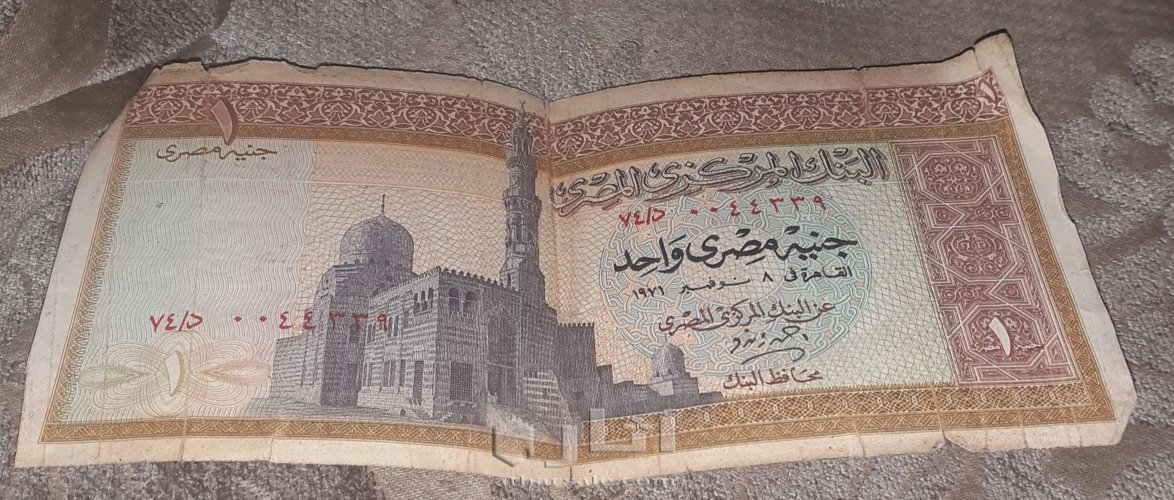 ١
١
جنيه مصرى
البنك المركزى المصرى
٧٤/د ٠٠٤٤٣٣٩
جنيه مصرى واحد
القاهرة فى ٨ نوفمبر ١٩٧١
عن البنك المركزى المصرى
محافظ البنك
٧٤/د ٠٠٤٤٣٣٩
١
١